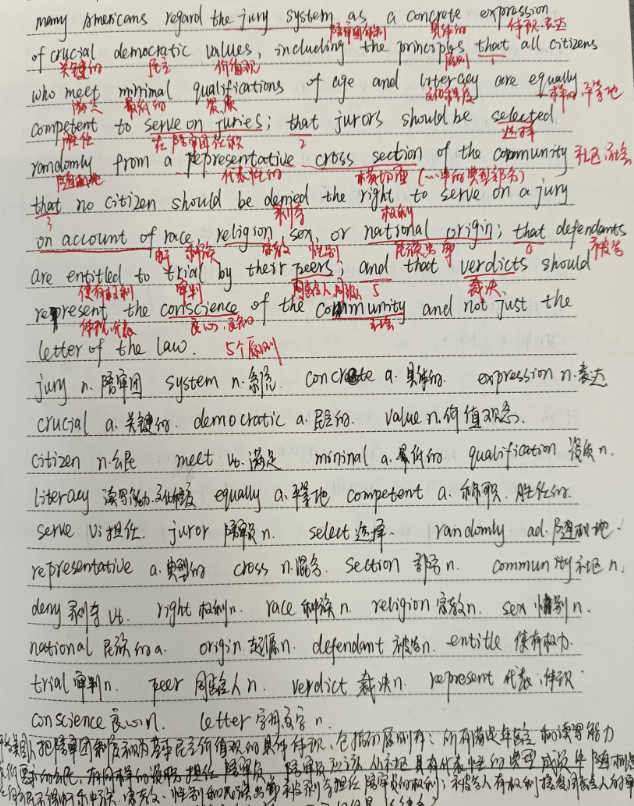 many Americans regard the jury system as a concrete expression
陪审团体制 具体的 体现.表达
of crucial democratic values, including the principles that all citizens
关键的 民主 价值观 原则 1
who meet minimal qualifications of age and literacy are equally
满足 最低的 资质 同样的 平等地
competent to serve on juries; that jurors should be selected
胜任 在陪审团任职 2 选择
randomly from a representative cross section of the community 社区.社会
随机地 代表性的
that no citizen should be denied the right to serve on a jury
3 剥夺 权利
on account of race, religion, sex, or national origin; that defendants
种族 宗教 性别 被告
are entitled to trial by their peers; and that verdicts should
使有权利 审判 5 裁决
represent the conscience of the community and not just the
体现.代表 良心. 社会
letter of the law. 5个原则
jury n.陪审团 system n.制度. concrete a.具体的. expression n.表达
crucial a.关键的. democratic a.民主的. value n.价值观念.
citizen n.公民 meet vt.满足 minimal a.最低的 qualification 资质n.
literacy 读写能力. equally a.平等地 competent a.称职.胜任的.
serve vi.担任. juror 陪审员n. select 选择. randomly ad.随机地.
representative a.典型的 cross n.混合. section 部分n. community 社区n.
deny 剥夺 vt. right 权利n. race 种族n religion 宗教n. sex 性别n.
national 民族的a. origin 起源n. defendant 被告n. entitle 使有权力.
trial 审判n. peer 同等人n. verdict 裁决n. represent 代表.体现
conscience 良心n. letter n.
把陪审团制度视为基本民主价值观的具体体现,包括的原则有:所有满足年龄和读写能力